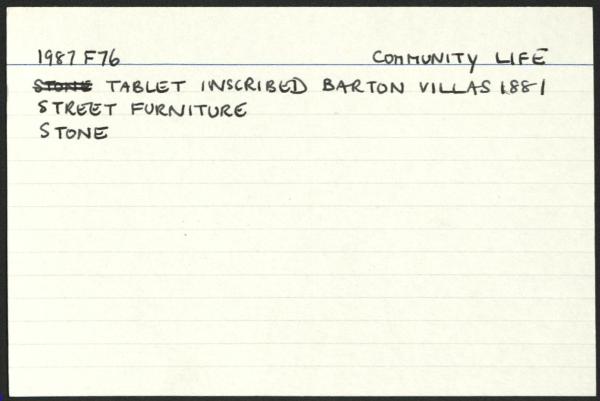 1987 F76 COMMUNITY LIFE
STONE TABLET INSCRIBED BARTON VILLAS 1881
STREET FURNITURE
STONE